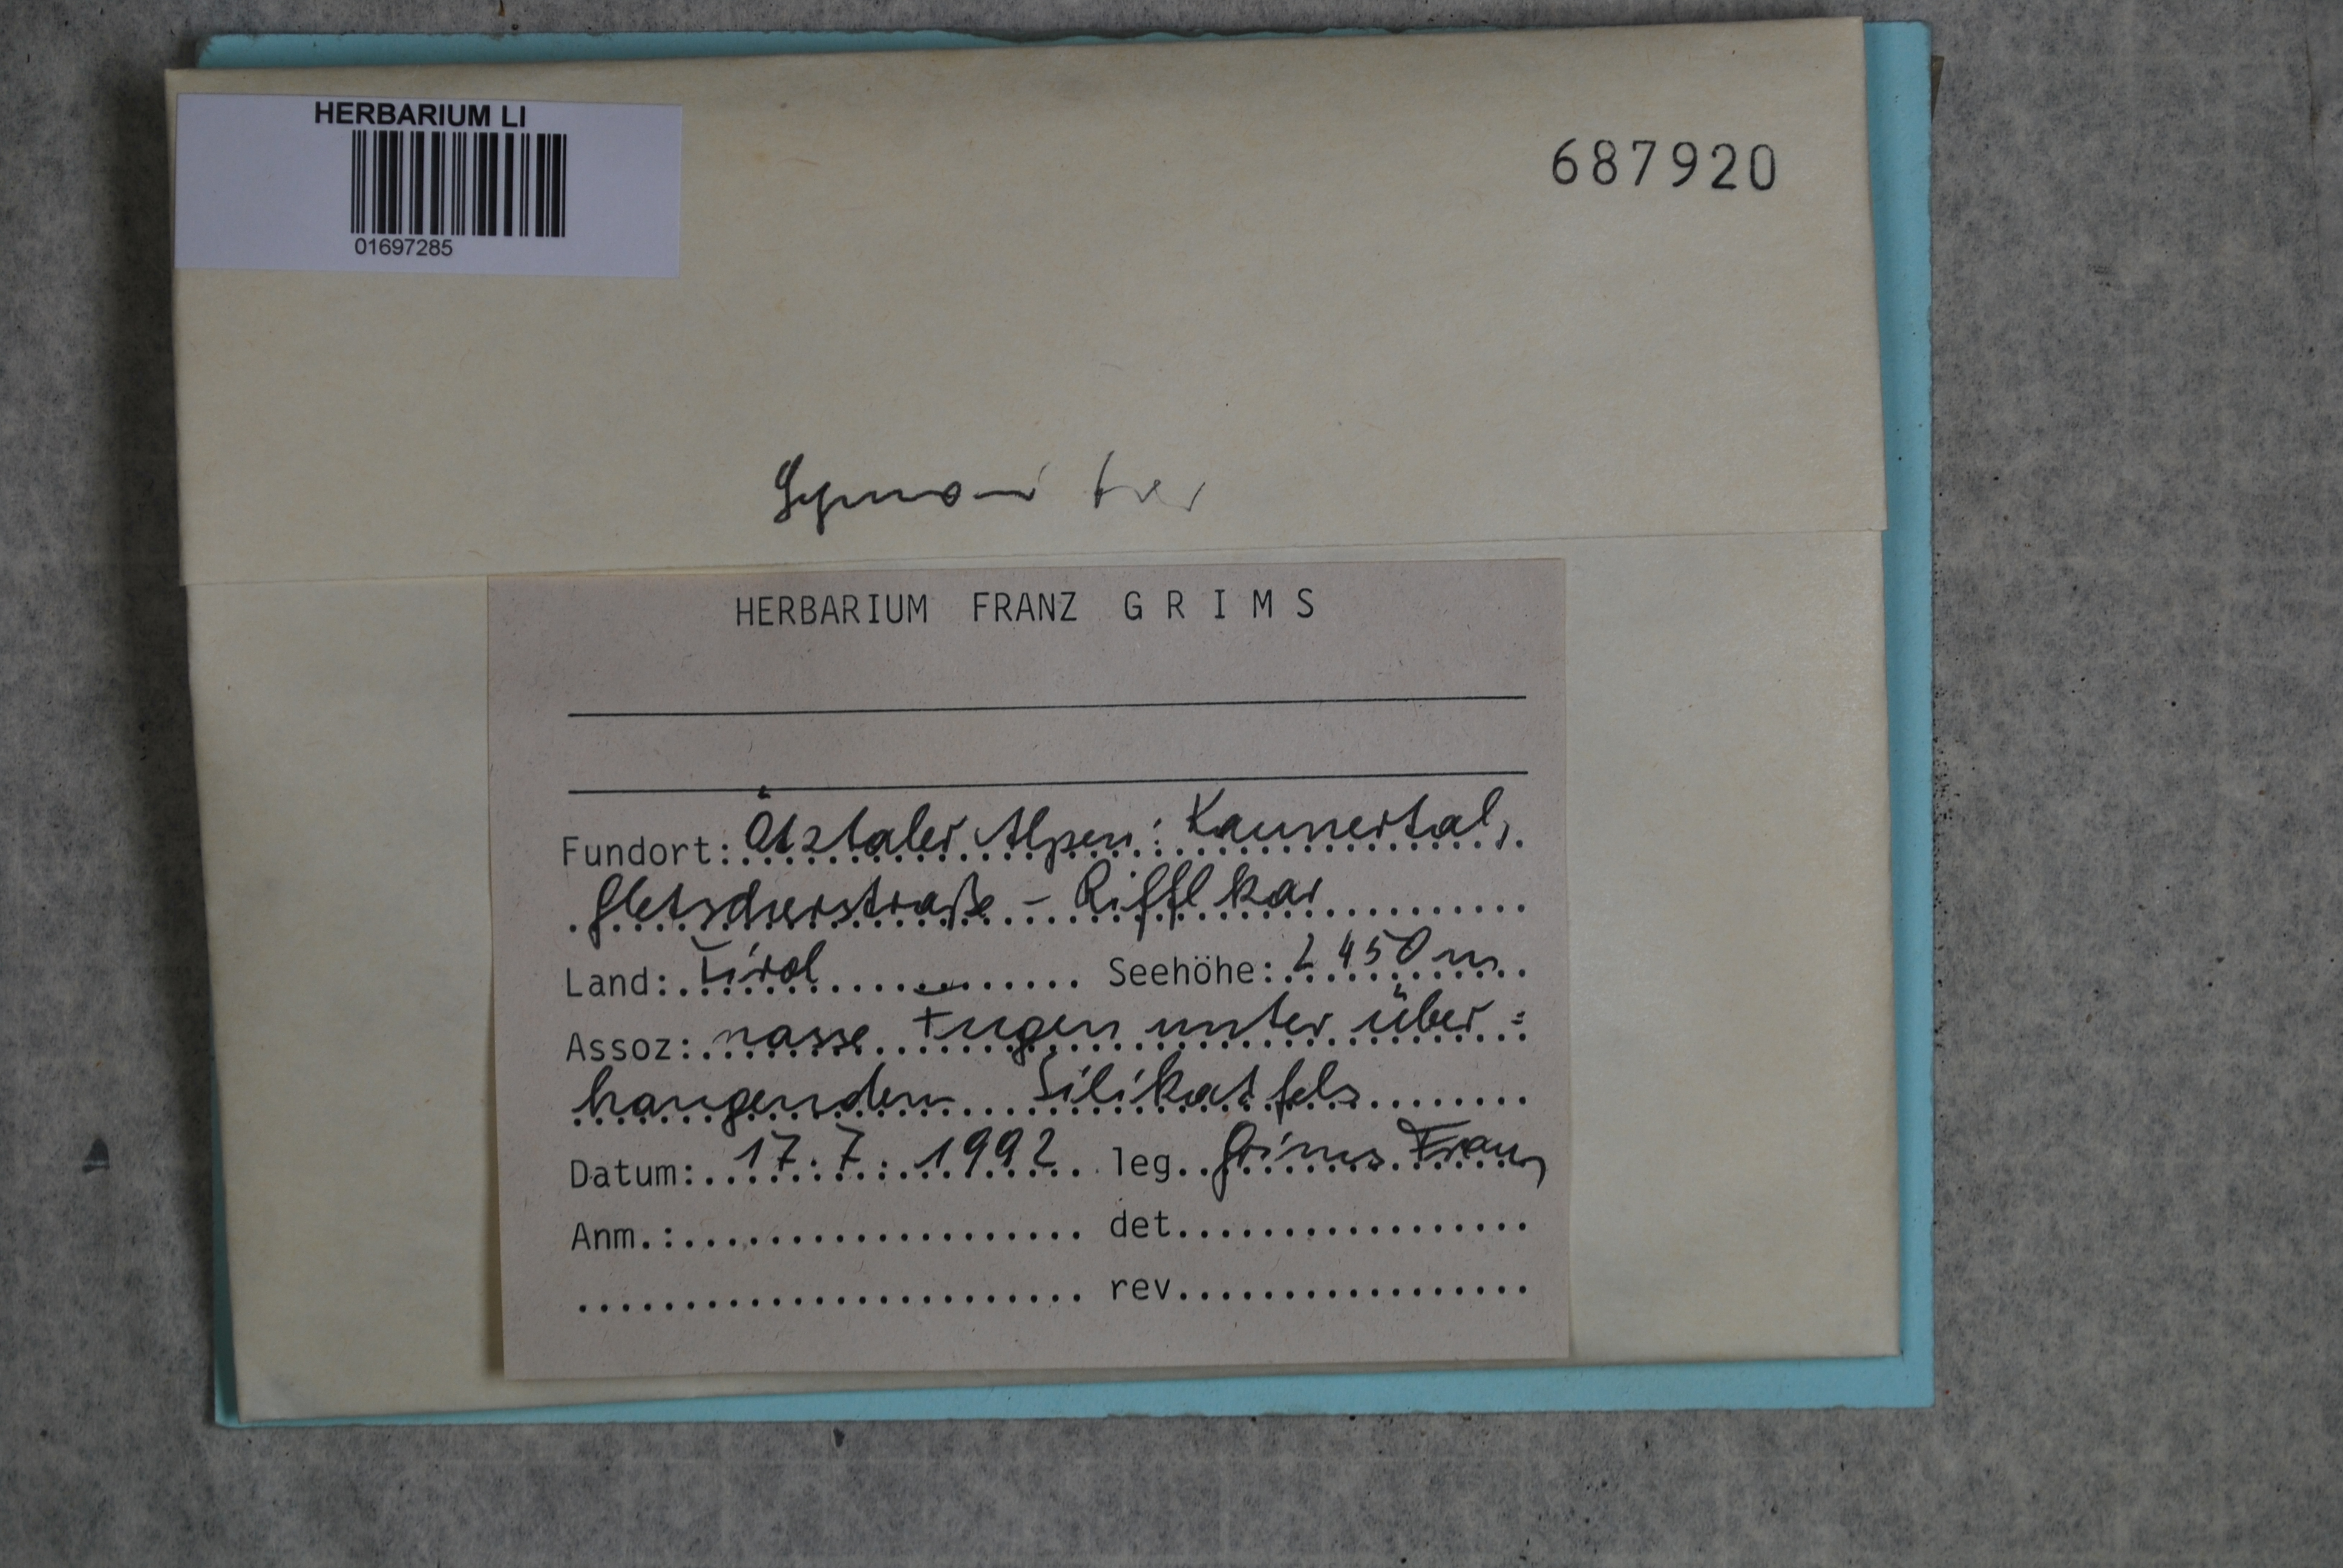 HERBARIUM LI
01697285
687920
HERBARIUM FRANZ G R I M S
Fundort: Ötztaler Alpen: Kaunertal,
Gletscherstraße - Rifflkar
Land: Tirol Seehöhe: 2450 m
Assoz: nasse Fugen unter über=
hangenden Silikatfels
Datum: 17. 7. 1992 leg. Grims Franz
Anm.: det.
rev.